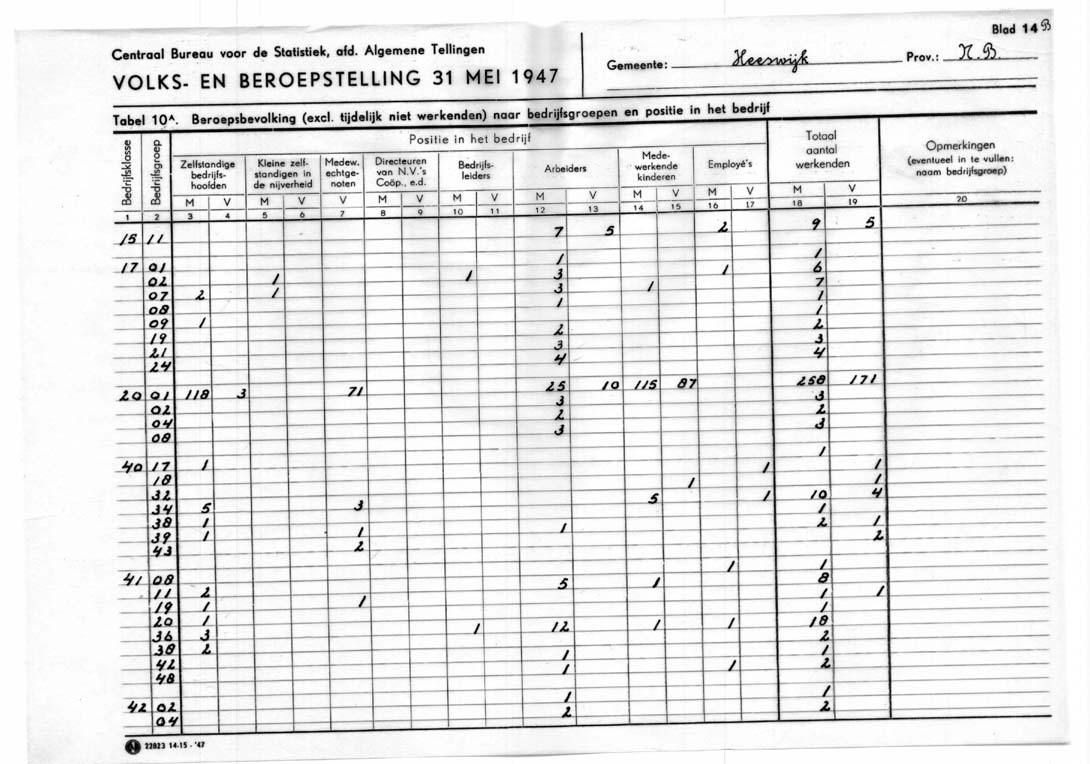 Blad 14 B
Centraal Bureau voor de Statistiek, afd. Algemene Tellingen
VOLKS- EN BEROEPSTELLING 31 MEI 1947
Gemeente: Heeswijk Prov.: N.B.
Tabel 10^. Beroepsbevolking (excl. tijdelijk niet werkenden) naar bedrijfsgroepen en positie in het bedrijf
Bedrijfsklasse
Bedrijfsgroep
Positie in het bedrijf
Zelfstandige
bedrijfs-
hoofden
Kleine zelf-
standigen in
de nijverheid
Medew.
echtge-
noten
Directeuren
van N.V.'s
Coöp., e.d.
Bedrijfs-
leiders
Arbeiders
Mede-
werkende
kinderen
Employé's
Totaal
aantal
werkenden
Opmerkingen
(eventueel in te vullen:
naam bedrijfsgroep)
M V M V V M V M V M V M V M V M V
1 2 3 4 5 6 7 8 9 10 11 12 13 14 15 16 17 18 19 20
15 11 7 5 2 9 5
17 01 1 1
02 1 1 3 1 6
07 2 1 3 1 7
08 1 1
09 1 1
19 2 2
21 3 3
24 4 4
20 01 118 3 71 25 10 115 87 258 171
02 3 3
04 2 2
08 3 3
40 17 1 1
18 1 1
32 1 1
34 5 3 5 1 10 4
38 1 1
39 1 1 1 2 1
43 2 2
41 08 1 1
11 2 5 1 8
19 1 1 1 1
20 1 1
36 3 1 12 1 1 18
38 2 2
42 1 1
48 1 1 2
42 02 1 1
04 2 2
22823 14-15 - '47